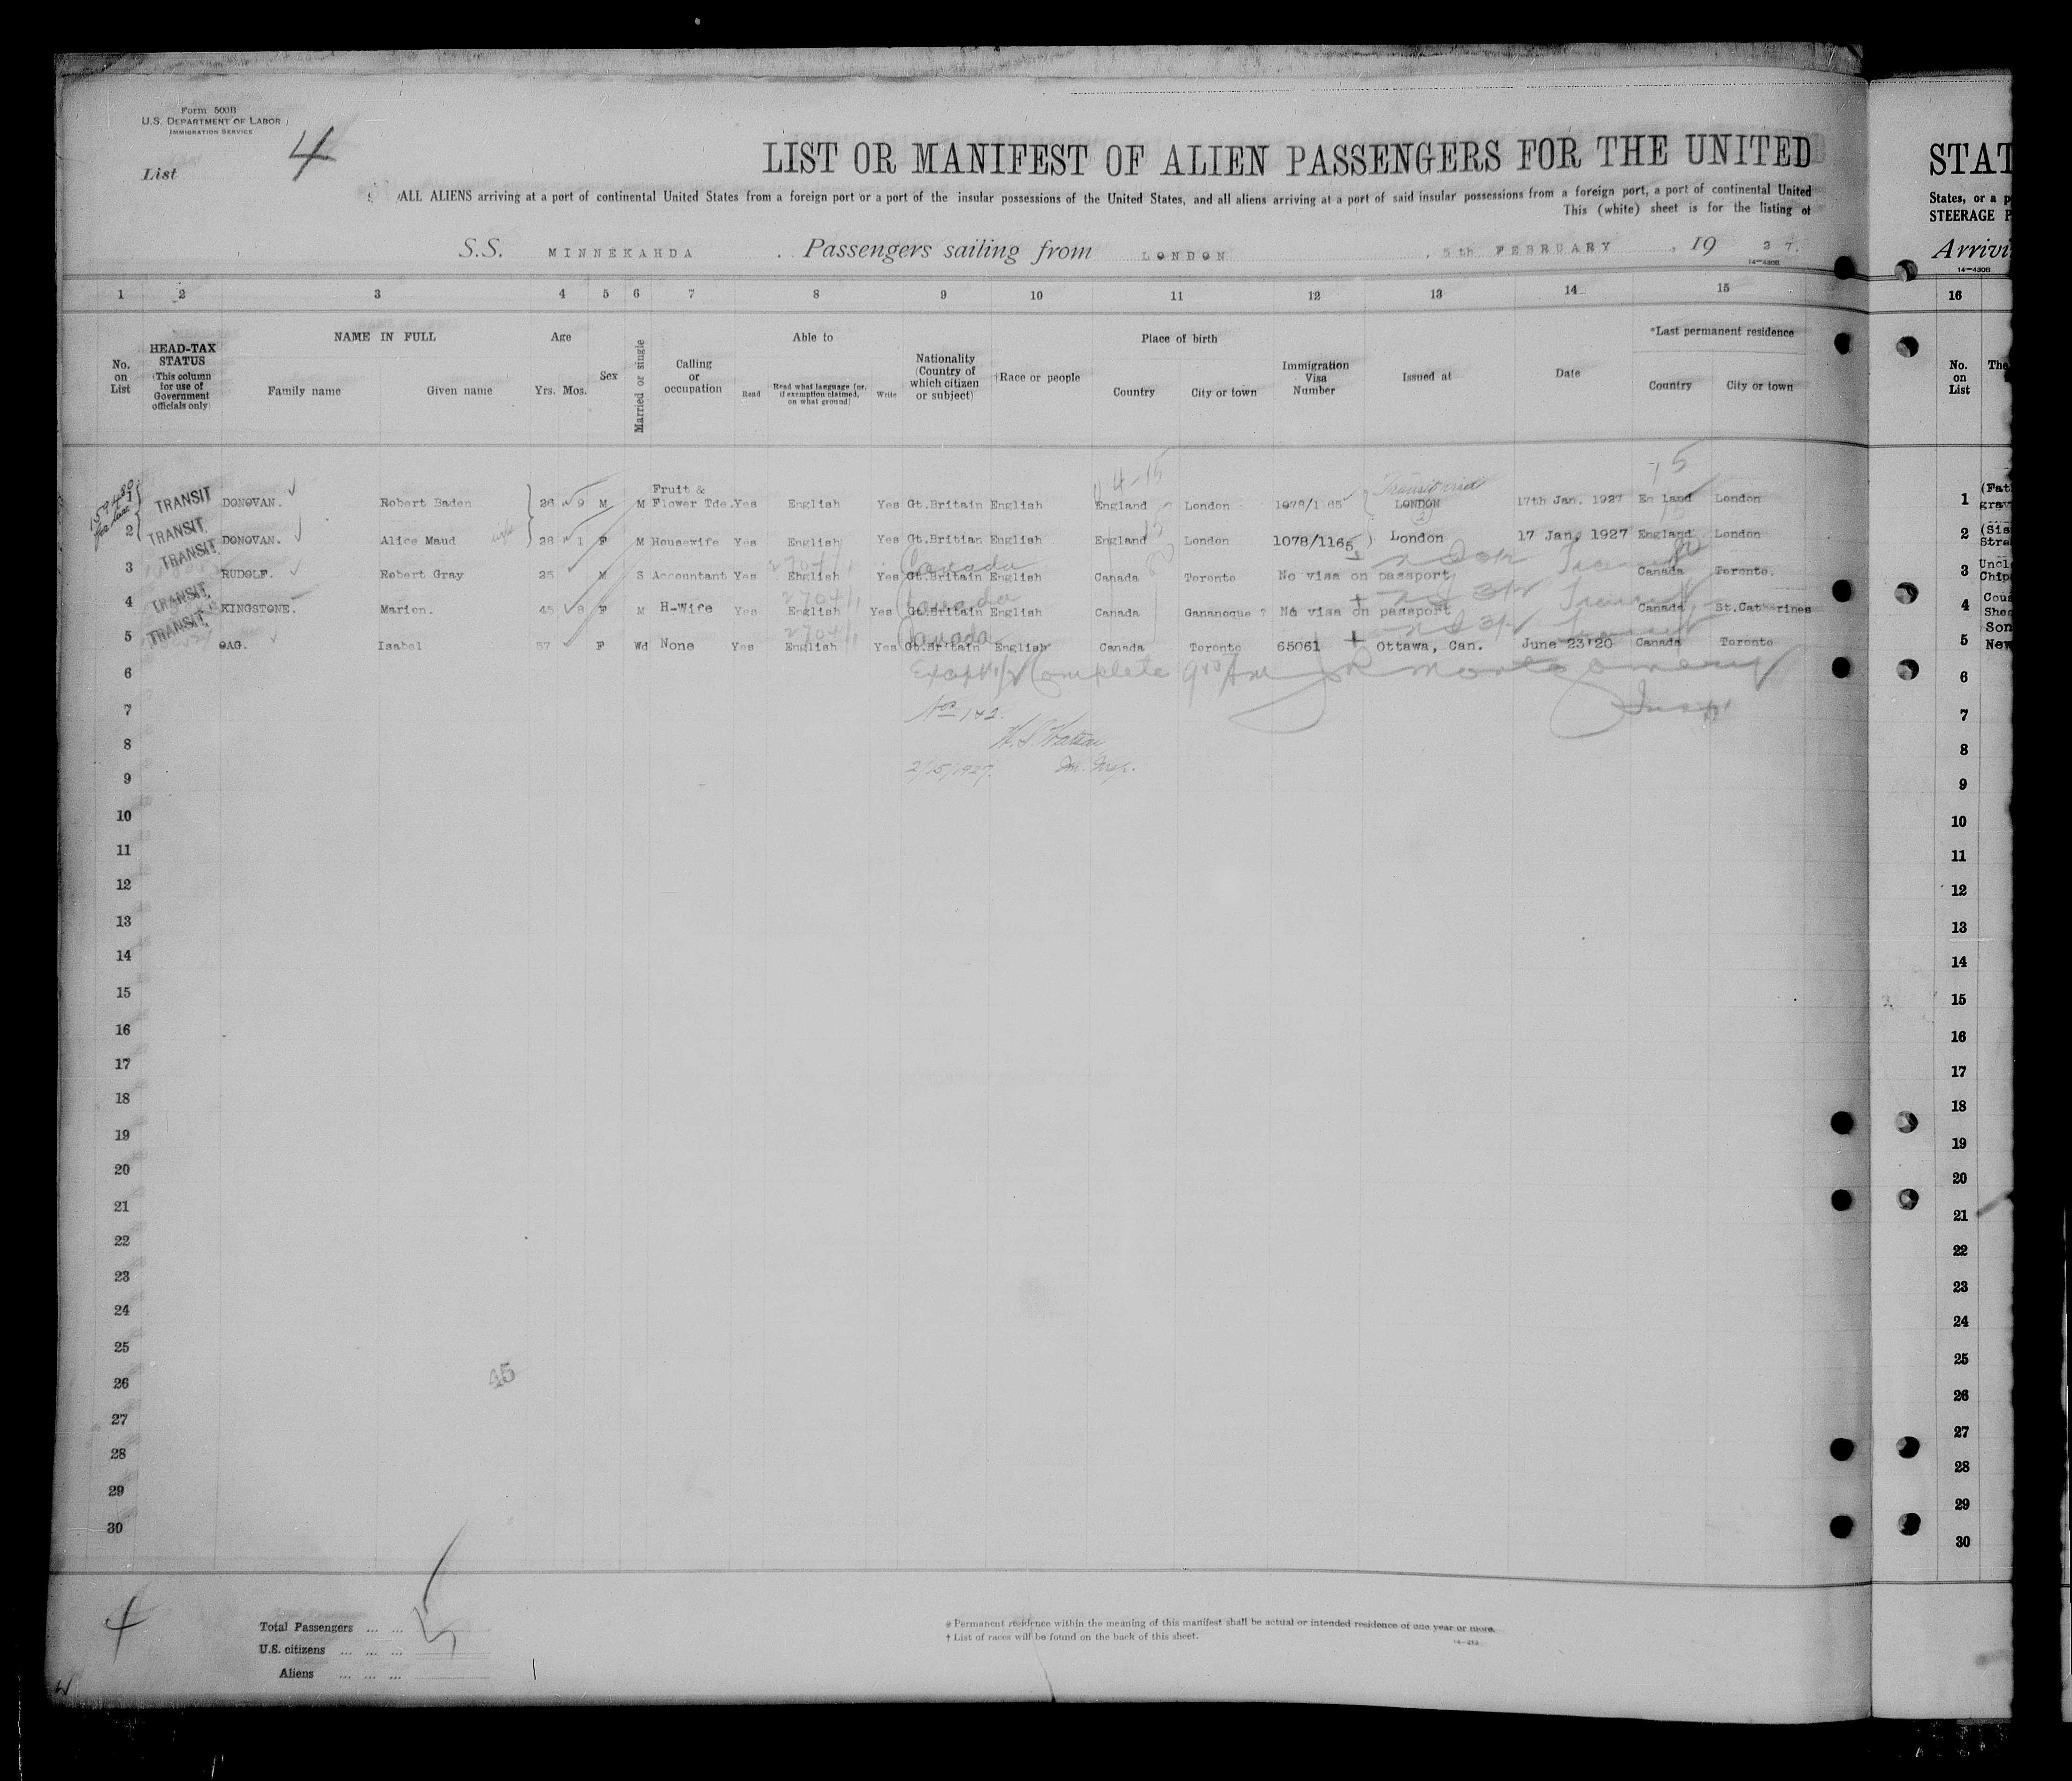 Form 500B
U.S. DEPARTMENT OF LABOR
IMMIGRATION SERVICE
List 4
LIST OR MANIFEST OF ALIEN PASSENGERS FOR THE UNITED
ALL ALIENS arriving at a port of continental United States from a foreign port or a port of the insular possessions of the United States, and all aliens arriving at a port of said insular possessions from a foreign port, a port of continental United
This (white) sheet is for the listing of
S.S. MINNEKAHDA . Passengers sailing from LONDON , 5th FEBRUARY , 19 27.
14-430B
1 2 3 4 5 6 7 8 9 10 11 12 13 14 15
No. on List
HEAD-TAX STATUS (This column for use of Government officials only)
NAME IN FULL
Family name Given name
Age
Yrs. Mos.
Sex
Married or single
Calling or occupation
Able to
Read Read what language [or, if exemption claimed, on what ground] Write
Nationality (Country of which citizen or subject)
†Race or people
Place of birth
Country City or town
Immigration Visa Number
Issued at
Date
*Last permanent residence
Country City or town
4-15
15
1 TRANSIT DONOVAN. Robert Baden 26 9 M M Fruit & Flower Tde. Yes English Yes Gt.Britain English England London 1078/1165 LONDON 17th Jan. 1927 En land London
2 TRANSIT DONOVAN. Alice Maud wife 28 1 F M Housewife Yes English Yes Gt.Britian English England London 1078/1165 London 17 Jan, 1927 England London
3 TRANSIT RUDOLF. Robert Gray 25 M S Accountant Yes English Yes Gt.Britain Canada English Canada Toronto No visa on passport Canada Toronto.
4 TRANSIT KINGSTONE. Marion. 45 8 F M H-Wife Yes English Yes Gt.Britain Canada English Canada Gananoque ? No visa on passport Canada St.Catharines
5 TRANSIT OAG. Isabel 57 F Wd None Yes English Yes Gt.Britain Canada English Canada Toronto 65061 Ottawa, Can. June 23'20 Canada Toronto
6
7 Nos 1 & 2.
8
9 2/15/1927. Im. Insp.
10
11
12
13
14
15
16
17
18
19
20
21
22
23
24
25
26 45
27
28
29
30
4
Total Passengers ... ... 5
U.S. citizens ... ... ...
Aliens ... ... ...
* Permanent residence within the meaning of this manifest shall be actual or intended residence of one year or more.
† List of races will be found on the back of this sheet.
STAT
States, or a p
STEERAGE P
Arrivi
14-430B
16
No. on List
The
1 (Fat
grav
2 (Sis
Stre
3 Uncl
Chip
4 Cous
Sher
5 Son
New
6
7
8
9
10
11
12
13
14
15
16
17
18
19
20
21
22
23
24
25
26
27
28
29
30